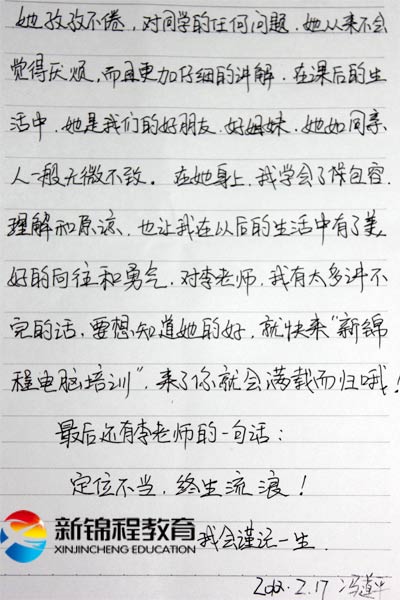 她孜孜不倦，对同学的任何问题，她从来不会
觉得厌烦，而且更加仔细的讲解，在课后的生
活中，她是我们的好朋友，好姐妹，她如同亲
人一般无微不致。在她身上，我学会了保包容，
理解和原谅，也让我在以后的生活中有了美
好的向往和勇气，对李老师，我有太多讲不
完的话，要想知道她的好，就快来“新锦
程电脑培训”，来了你就会满载而归哦！
最后还有李老师的一句话：
定位不当，终生流浪！
新锦程教育
XINJINCHENG EDUCATION
我会谨记一生.
2012.2.17 冯